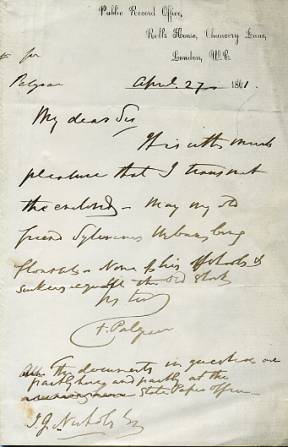 Public Record Office,
Rolls House, Chancery Lane,
London, W.C.
Sir F
Palgrave
April 27 1861.
My dear Sir
It is with much
pleasure that I transmit
the enclosed – May my old
friend Sylvanus Urban long
flourish – None of his offshoots &
suckers equal the old Stock
Yrs truly
F. Palgrave
The documents in question are
partly here and partly at the
State Paper office –
J. G. Nichols Esq